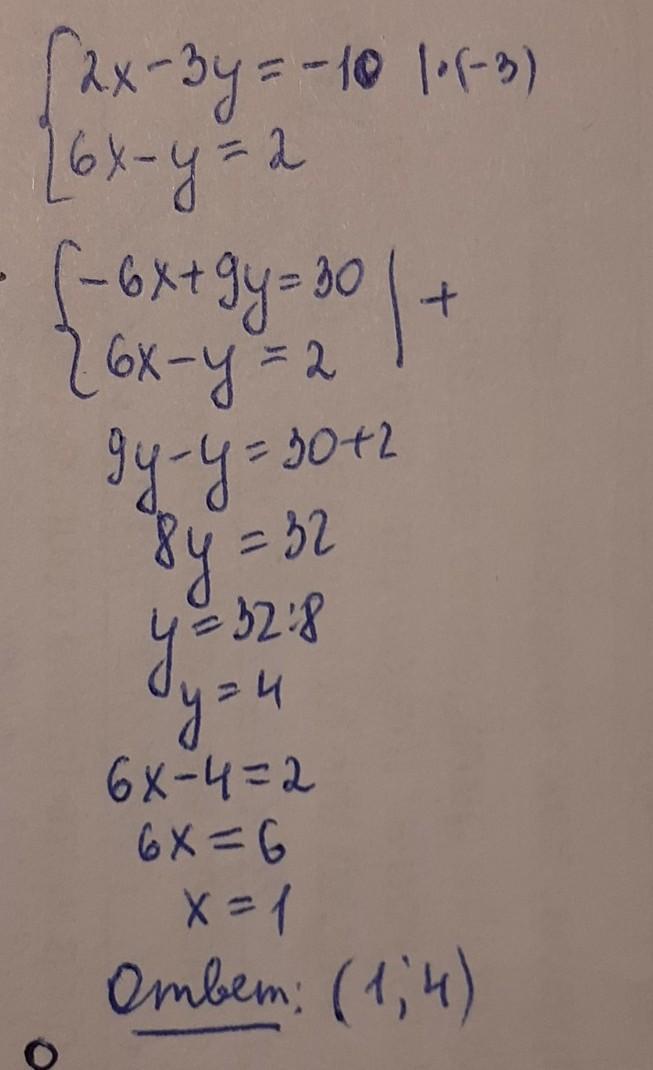 2x-3y=-10 |·(-3)
6x-y=2
-6x+9y=30
6x-y=2 | +
9y-y=30+2
8y=32
y=32:8
y=4
6x-4=2
6x=6
x=1
Ответ: (1;4)